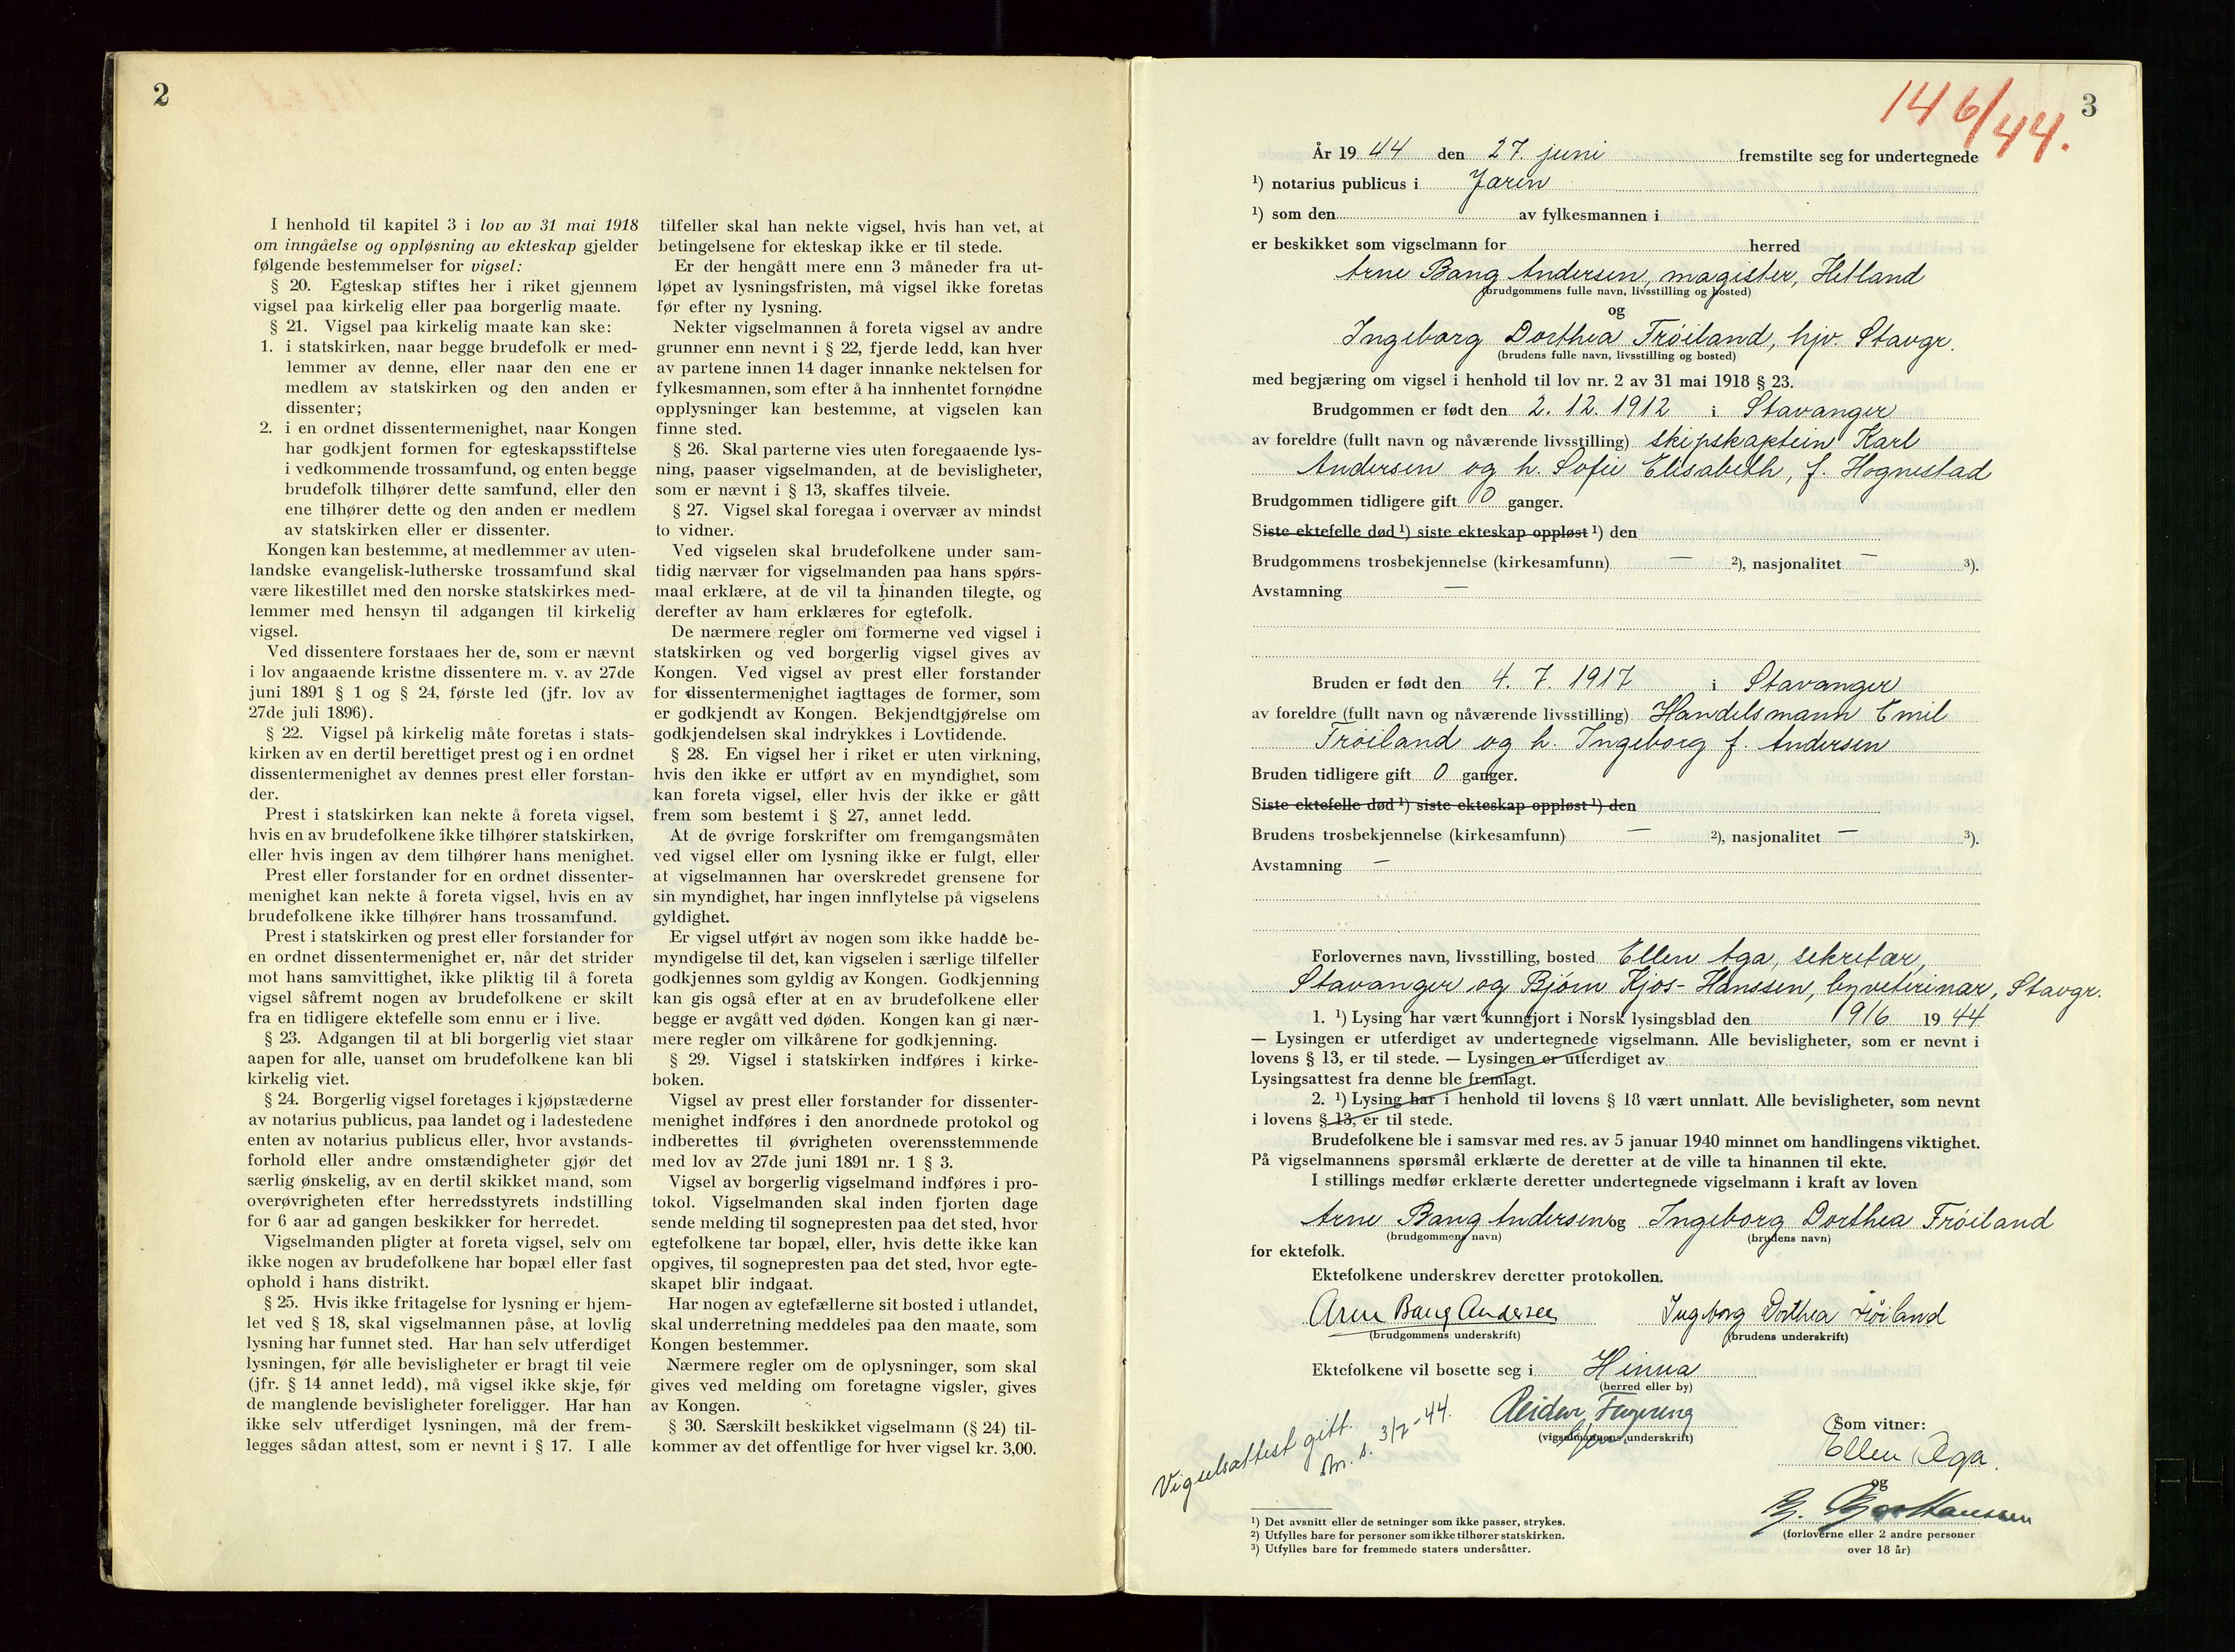 2
I henhold til kapitel 3 i lov av 31 mai 1918
om inngåelse og oppløsning av ekteskap gjelder
følgende bestemmelser for vigsel:
§ 20. Egteskap stiftes her i riket gjennem
vigsel paa kirkelig eller paa borgerlig maate.
§ 21. Vigsel paa kirkelig maate kan ske:
1. i statskirken, naar begge brudefolk er med-
lemmer av denne, eller naar den ene er
medlem av statskirken og den anden er
dissenter;
2. i en ordnet dissentermenighet, naar Kongen
har godkjent formen for egteskapsstiftelse
i vedkommende trossamfund, og enten begge
brudefolk tilhører dette samfund, eller den
ene tilhører dette og den anden er medlem
av statskirken eller er dissenter.
Kongen kan bestemme, at medlemmer av uten-
landske evangelisk-lutherske trossamfund skal
være likestillet med den norske statskirkes med-
lemmer med hensyn til adgangen til kirkelig
vigsel.
Ved dissentere forstaaes her de, som er nævnt
i lov angaaende kristne dissentere m. v. av 27de
juni 1891 § 1 og § 24, første led (jfr. lov av
27de juli 1896).
§ 22. Vigsel på kirkelig måte foretas i stats-
kirken av en dertil berettiget prest og i en ordnet
dissentermenighet av dennes prest eller forstan-
der.
Prest i statskirken kan nekte å foreta vigsel,
hvis en av brudefolkene ikke tilhører statskirken,
eller hvis ingen av dem tilhører hans menighet.
Prest eller forstander for en ordnet dissenter-
menighet kan nekte å foreta vigsel, hvis en av
brudefolkene ikke tilhører hans trossamfund.
Prest i statskirken og prest eller forstander for
en ordnet dissentermenighet er, når det strider
mot hans samvittighet, ikke pliktig til å foreta
vigsel såfremt nogen av brudefolkene er skilt
fra en tidligere ektefelle som ennu er i live.
§ 23. Adgangen til at bli borgerlig viet staar
aapen for alle, uanset om brudefolkene kan bli
kirkelig viet.
§ 24. Borgerlig vigsel foretages i kjøpstæderne
av notarius publicus, paa landet og i ladestedene
enten av notarius publicus eller, hvor avstands-
forhold eller andre omstændigheter gjør det
særlig ønskelig, av en dertil skikket mand, som
overøvrigheten efter herredsstyrets indstilling
for 6 aar ad gangen beskikker for herredet.
Vigselmanden pligter at foreta vigsel, selv om
ikke nogen av brudefolkene har bopæl eller fast
ophold i hans distrikt.
§ 25. Hvis ikke fritagelse for lysning er hjem-
let ved § 18, skal vigselmannen påse, at lovlig
lysning har funnet sted. Har han selv utferdiget
lysningen, før alle bevisligheter er bragt til veie
(jfr. § 14 annet ledd), må vigsel ikke skje, før
de manglende bevisligheter foreligger. Har han
ikke selv utferdiget lysningen, må der frem-
legges sådan attest, som er nevnt i § 17. I alle
tilfeller skal han nekte vigsel, hvis han vet, at
betingelsene for ekteskap ikke er til stede.
Er der hengått mere enn 3 måneder fra ut-
løpet av lysningsfristen, må vigsel ikke foretas
før efter ny lysning.
Nekter vigselmannen å foreta vigsel av andre
grunner enn nevnt i § 22, fjerde ledd, kan hver
av partene innen 14 dager innanke nektelsen for
fylkesmannen, som efter å ha innhentet fornødne
opplysninger kan bestemme, at vigselen kan
finne sted.
§ 26. Skal parterne vies uten foregaaende lys-
ning, paaser vigselmanden, at de bevisligheter,
som er nævnt i § 13, skaffes tilveie.
§ 27. Vigsel skal foregaa i overvær av mindst
to vidner.
Ved vigselen skal brudefolkene under sam-
tidig nærvær for vigselmanden paa hans spørs-
maal erklære, at de vil ta hinanden tilegte, og
derefter av ham erklæres for egtefolk.
De nærmere regler om formerne ved vigsel i
statskirken og ved borgerlig vigsel gives av
Kongen. Ved vigsel av prest eller forstander
for dissentermenighet iagttages de former, som
er godkjendt av Kongen. Bekjendtgjørelse om
godkjendelsen skal indrykkes i Lovtidende.
§ 28. En vigsel her i riket er uten virkning,
hvis den ikke er utført av en myndighet, som
kan foreta vigsel, eller hvis der ikke er gått
frem som bestemt i § 27, annet ledd.
At de øvrige forskrifter om fremgangsmåten
ved vigsel eller om lysning ikke er fulgt, eller
at vigselmannen har overskredet grensene for
sin myndighet, har ingen innflytelse på vigselens
gyldighet.
Er vigsel utført av nogen som ikke hadde be-
myndigelse til det, kan vigselen i særlige tilfeller
godkjennes som gyldig av Kongen. Godkjenning
kan gis også efter at en av brudefolkene eller
begge er avgått ved døden. Kongen kan gi nær-
mere regler om vilkårene for godkjenning.
§ 29. Vigsel i statskirken indføres i kirke-
boken.
Vigsel av prest eller forstander for dissenter-
menighet indføres i den anordnede protokol og
indberettes til øvrigheten overensstemmende
med lov av 27de juni 1891 nr. 1 § 3.
Vigsel av borgerlig vigselmand indføres i pro-
tokol. Vigselmanden skal inden fjorten dage
sende melding til sognepresten paa det sted, hvor
egtefolkene tar bopæl, eller, hvis dette ikke kan
opgives, til sognepresten paa det sted, hvor egte-
skapet blir indgaat.
Har nogen av egtefællerne sit bosted i utlandet,
skal underretning meddeles paa den maate, som
Kongen bestemmer.
Nærmere regler om de oplysninger, som skal
gives ved melding om foretagne vigsler, gives
av Kongen.
§ 30. Særskilt beskikket vigselmann (§ 24) til-
kommer av det offentlige for hver vigsel kr. 3,00.
146/44.
3
År 1944 den 27. juni fremstilte seg for undertegnede
¹) notarius publicus i Jæren
¹) som den av fylkesmannen i
er beskikket som vigselmann for herred
Arne Bang Andersen, magister, Hetland
(brudgommens fulle navn, livsstilling og bosted)
og
Ingeborg Dorthea Tröiland, hjv. Stavgr.
(brudens fulle navn, livsstilling og bosted)
med begjæring om vigsel i henhold til lov nr. 2 av 31 mai 1918 § 23.
Brudgommen er født den 2. 12. 1912 i Stavanger
av foreldre (fullt navn og nåværende livsstilling) skipskaptein Karl
Andersen og h. Sofie Elisabeth, f. Hognestad
Brudgommen tidligere gift 0 ganger.
Siste ektefelle død ¹) siste ekteskap oppløst ¹) den
Brudgommens trosbekjennelse (kirkesamfunn) — ²), nasjonalitet — ³).
Avstamning —
Bruden er født den 4. 7. 1917 i Stavanger
av foreldre (fullt navn og nåværende livsstilling) Handelsmann Emil
Tröiland og h. Ingeborg f. Andersen
Bruden tidligere gift 0 ganger.
Siste ektefelle død ¹) siste ekteskap oppløst ¹) den
Brudens trosbekjennelse (kirkesamfunn) — ²), nasjonalitet — ³).
Avstamning —
Forlovernes navn, livsstilling, bosted Ellen Aga, sekretær,
Stavanger og Björn Kjos-Hanssen, byveterinær, Stavgr.
1. ¹) Lysing har vært kunngjort i Norsk lysingsblad den 9/6 1944
— Lysingen er utferdiget av undertegnede vigselmann. Alle bevisligheter, som er nevnt i
lovens § 13, er til stede. — Lysingen er utferdiget av
Lysingsattest fra denne ble fremlagt.
2. ¹) Lysing har i henhold til lovens § 18 vært unnlatt. Alle bevisligheter, som nevnt
i lovens § 13, er til stede.
Brudefolkene ble i samsvar med res. av 5 januar 1940 minnet om handlingens viktighet.
På vigselmannens spørsmål erklærte de deretter at de ville ta hinannen til ekte.
I stillings medfør erklærte deretter undertegnede vigselmann i kraft av loven
Arne Bang Andersen og Ingeborg Dorthea Tröiland
(brudgommens navn) (brudens navn)
for ektefolk.
Ektefolkene underskrev deretter protokollen.
Arne Bang Andersen Ingeborg Dorthea Tröiland
(brudgommens underskrift) (brudens underskrift)
Ektefolkene vil bosette seg i Hinna
(herred eller by)
Vigselsattest gitt.
3/7-44.
Reidar
(vigselmannens underskrift)
Som vitner:
Ellen Aga.
og
B. Kjos Hanssen
(forloverne eller 2 andre personer
over 18 år)
¹) Det avsnitt eller de setninger som ikke passer, strykes.
²) Utfylles bare for personer som ikke tilhører statskirken.
³) Utfylles bare for fremmede staters undersåtter.